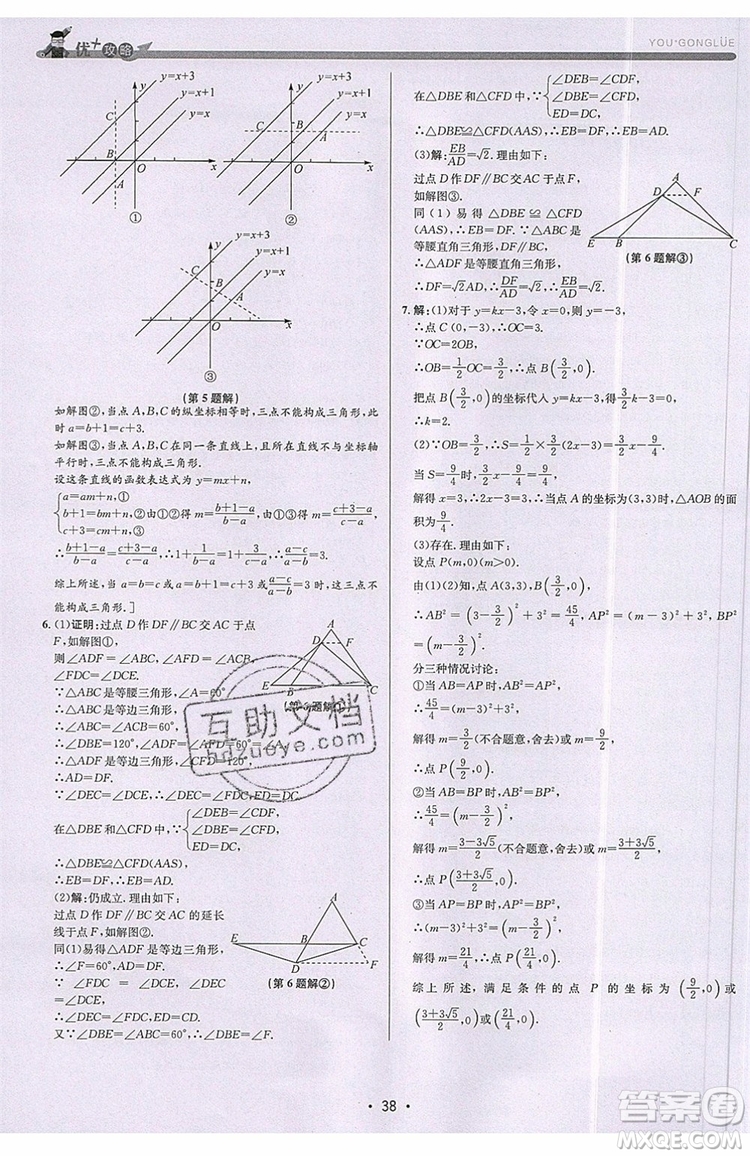 优+攻略
YOU+GONGLÜE
y
y=x+3
y=x+1
y=x
C
B
O
A
x
①
y
y=x+3
y=x+1
y=x
C
B
A
O
x
②
y
y=x+3
y=x+1
y=x
C
B
A
O
x
③
(第5题解)
如解图②,当点A,B,C的纵坐标相等时,三点不能构成三角形,此
时a=b+1=c+3.
如解图③,当点A,B,C在同一条直线上,且所在直线不与坐标轴
平行时,三点不能构成三角形.
设这条直线的函数表达式为y=mx+n,
{a=am+n,①
b+1=bm+n,② ∴m=(b+1-a)/(b-a)=(c+3-a)/(c-a).
c+3=cm+n.③
∴(b+1-a)/(b-a)=(c+3-a)/(c-a),∴1+1/(b-a)=1+3/(c-a),∴(a-c)/(a-b)=3.
综上所述,当a=b=c或a=b+1=c+3或(a-c)/(a-b)=3时,三点不
能构成三角形.]
6.(1)证明:过点D作DF∥BC交AC于点
F,如解图①,
则∠ADF=∠ABC,∠AFD=∠ACB,
∠FDC=∠DCE.
∵△ABC是等腰三角形,∠A=60°,
∴△ABC是等边三角形,
∴∠ABC=∠ACB=60°,
∴∠DBE=120°,∠ADF=∠AFD=60°=∠A,
∴△ADF是等边三角形,∠DFC=120°,
∴AD=DF.
∵∠DEC=∠DCE,∴∠FDC=∠DEC,ED=CD.
在△DBE和△CFD中,∵{∠DEB=∠CDF,
∠DBE=∠CFD,
ED=DC,
∴△DBE≌△CFD(AAS),
∴EB=DF,
∴EB=AD.
A
D
F
E
B
C
(第6题解①)
(2)解:仍成立.理由如下:
过点D作DF∥BC交AC的延长
线于点F,如解图②.
同(1)易得△ADF是等边三角形,
∴∠F=60°,AD=DF,∠FDC
=∠DCE.
∵∠DEC=∠DCE,
∴∠FDC=∠DEC,ED=CD.
又∵∠DBE=∠ABC=60°,∴∠DBE=∠F.
A
E
B
C
D
F
(第6题解②)
在△DBE和△CDF中,∵{∠DEB=∠CDF,
∠DBE=∠CFD,
ED=DC,
∴△DBE≌△CFD(AAS),∴EB=DF,∴EB=AD.
(3)解:EB/AD=√2.理由如下:
过点D作DF∥BC交AC于点F,
如解图③.
同(1)易得△DBE≌△CFD
(AAS),∴EB=DF.∵△ABC是
等腰直角三角形,DF∥BC,
∴△ADF是等腰直角三角形,
∴DF=√2AD,∴DF/AD=√2,∴EB/AD=√2.
A
D
F
E
B
C
(第6题解③)
7.解:(1)对于y=kx-3,令x=0,则y=-3,
∴点C(0,-3),∴OC=3.
∵OC=2OB,
∴OB=1/2OC=3/2,∴点B(3/2,0).
把点B(3/2,0)的坐标代入y=kx-3,得3/2k-3=0,
∴k=2.
(2)∵OB=3/2,∴S=1/2×3/2(2x-3)=3/2x-9/4.
当S=9/4时,则3/2x-9/4=9/4,
解得x=3,∴2x-3=3,∴当点A的坐标为(3,3)时,△AOB的面
积为9/4.
(3)存在.理由如下:
设点P(m,0)(m>0).
由(1)(2)知,点A(3,3),点B(3/2,0),
∴AB²=(3-3/2)²+3²=45/4,AP²=(m-3)²+3²,
BP²=(m-3/2)².
分三种情况讨论:
①当AB=AP时,AB²=AP²,
∴45/4=(m-3)²+3²,
解得m=3/2(不合题意,舍去)或m=9/2,∴点P(9/2,0);
②当AB=BP时,AB²=BP²,
∴45/4=(m-3/2)²,
解得m=(3-3√5)/2(不合题意,舍去)或m=(3+3√5)/2,
∴点P((3+3√5)/2,0);
③当AP=BP时,AP²=BP²,
∴(m-3)²+3²=(m-3/2)²,
解得m=21/4,∴点P(21/4,0).
综上所述,满足条件的点P的坐标为(9/2,0)或
((3+3√5)/2,0)或(21/4,0).
互助文档
bdzuoye.com
·38·
答案圈
MXQE.COM